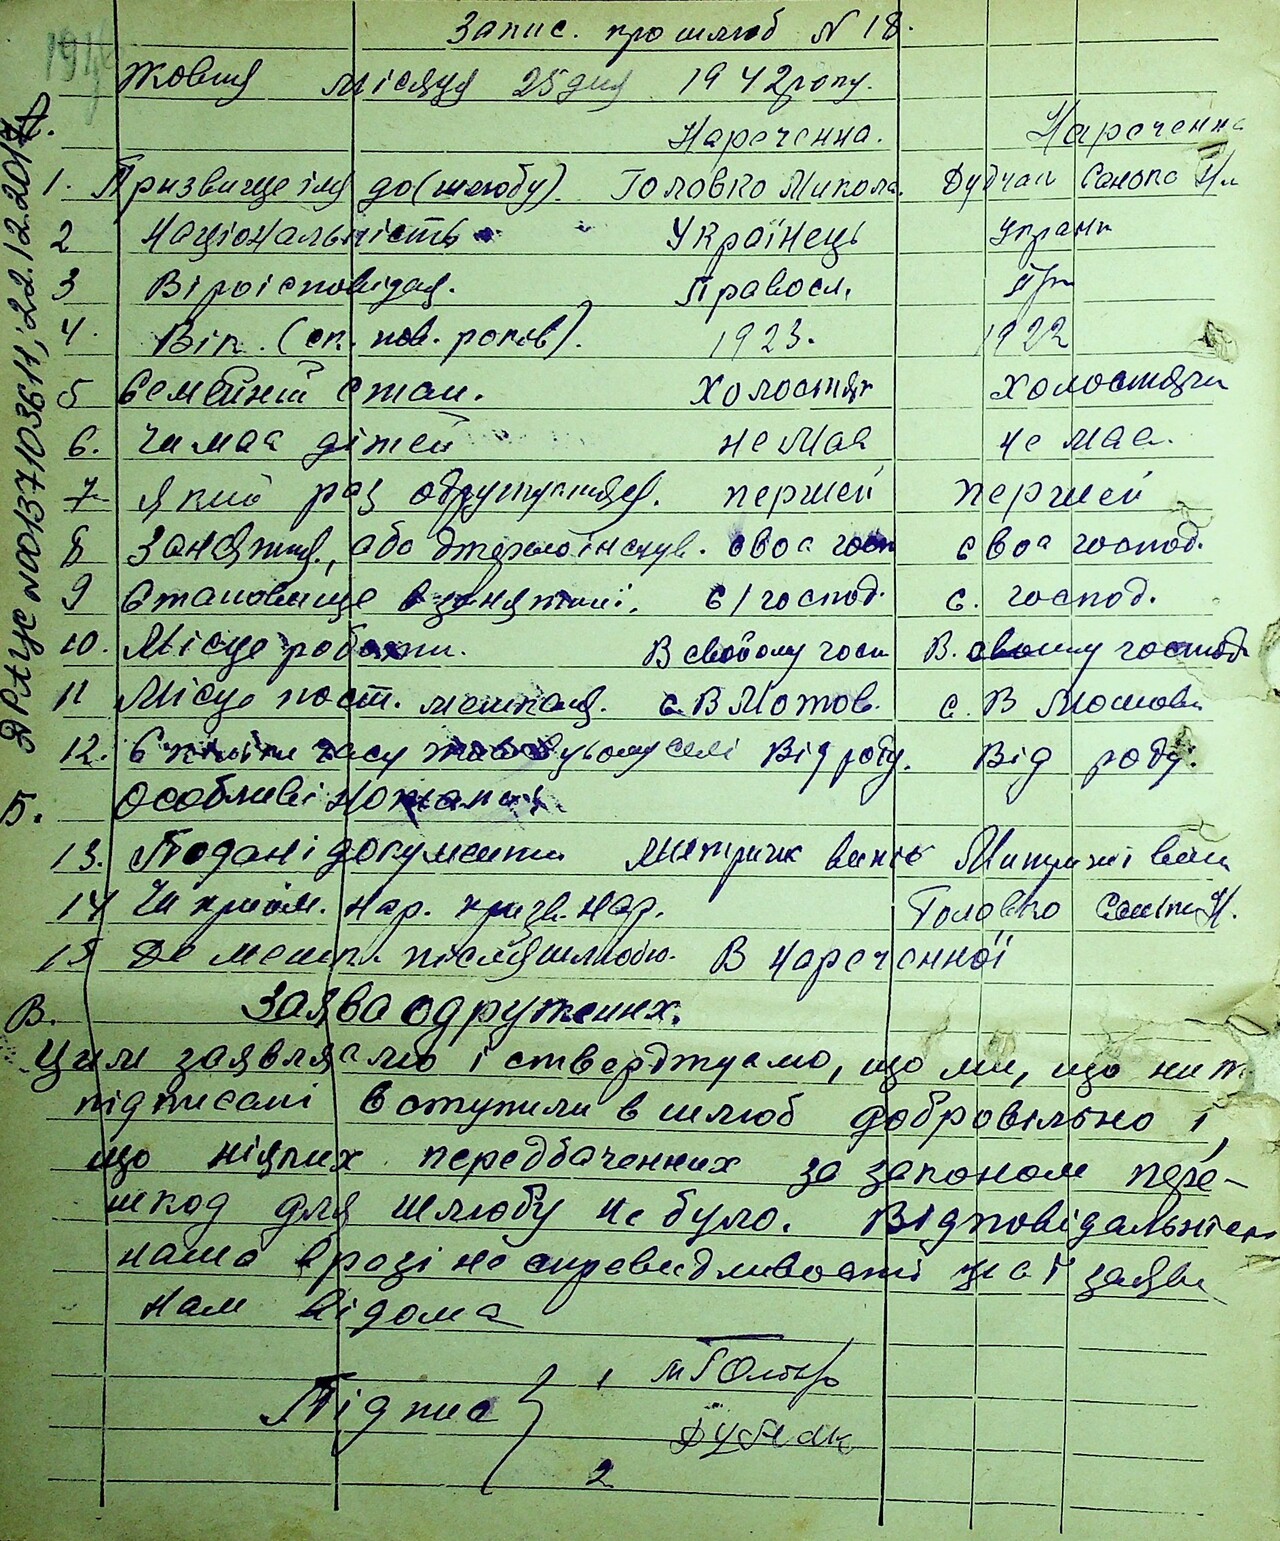 Запис. про шлюб N 18.
Жовтня місяця 25 дня 1942 року.
Нареченна. Нареченна
1. Призвище імя до (шлюбу). Головко Микола. Дудчак
2 Національність Українець украін
3 Віроісповідан. Правосл. Пр
4. Вік. (ск. пов. років). 1923. 1922
5 Семейній стан. холостяк холостячк
6. Чи мае дітей не мае не мае.
7 Який раз одружується. першей першей
8 Заняття, або джерело існув. свое госп свое господ.
9 Становище в занятті. с/господ. с. господ.
10. Місце роботи. В своёому госп В. своему господ
11 Місце пост. мешкан. с. В с. В
12. С якого часу цьому селі Від роду. Від роду.
Б. Особливі нотатки
13. Подані документи метричк випис Метричні вип
14 Чи прийм. нар. призв. нар. Головко
15 Де мешк. після шлюбю. В Нареченної
В. Заява одружених.
Цим заявляемо і стверджуемо, що ми, що ниж
підписані вступили в шлюб добровільно і,
що ніяких передбаченних за законом пере-
шкод для шлюбу не було. Відповідальність
наша в разі не справедливості цеї заяви
нам відома
Підпис 1
2
ДРАЦС №00137103611; 22.12.2017р.